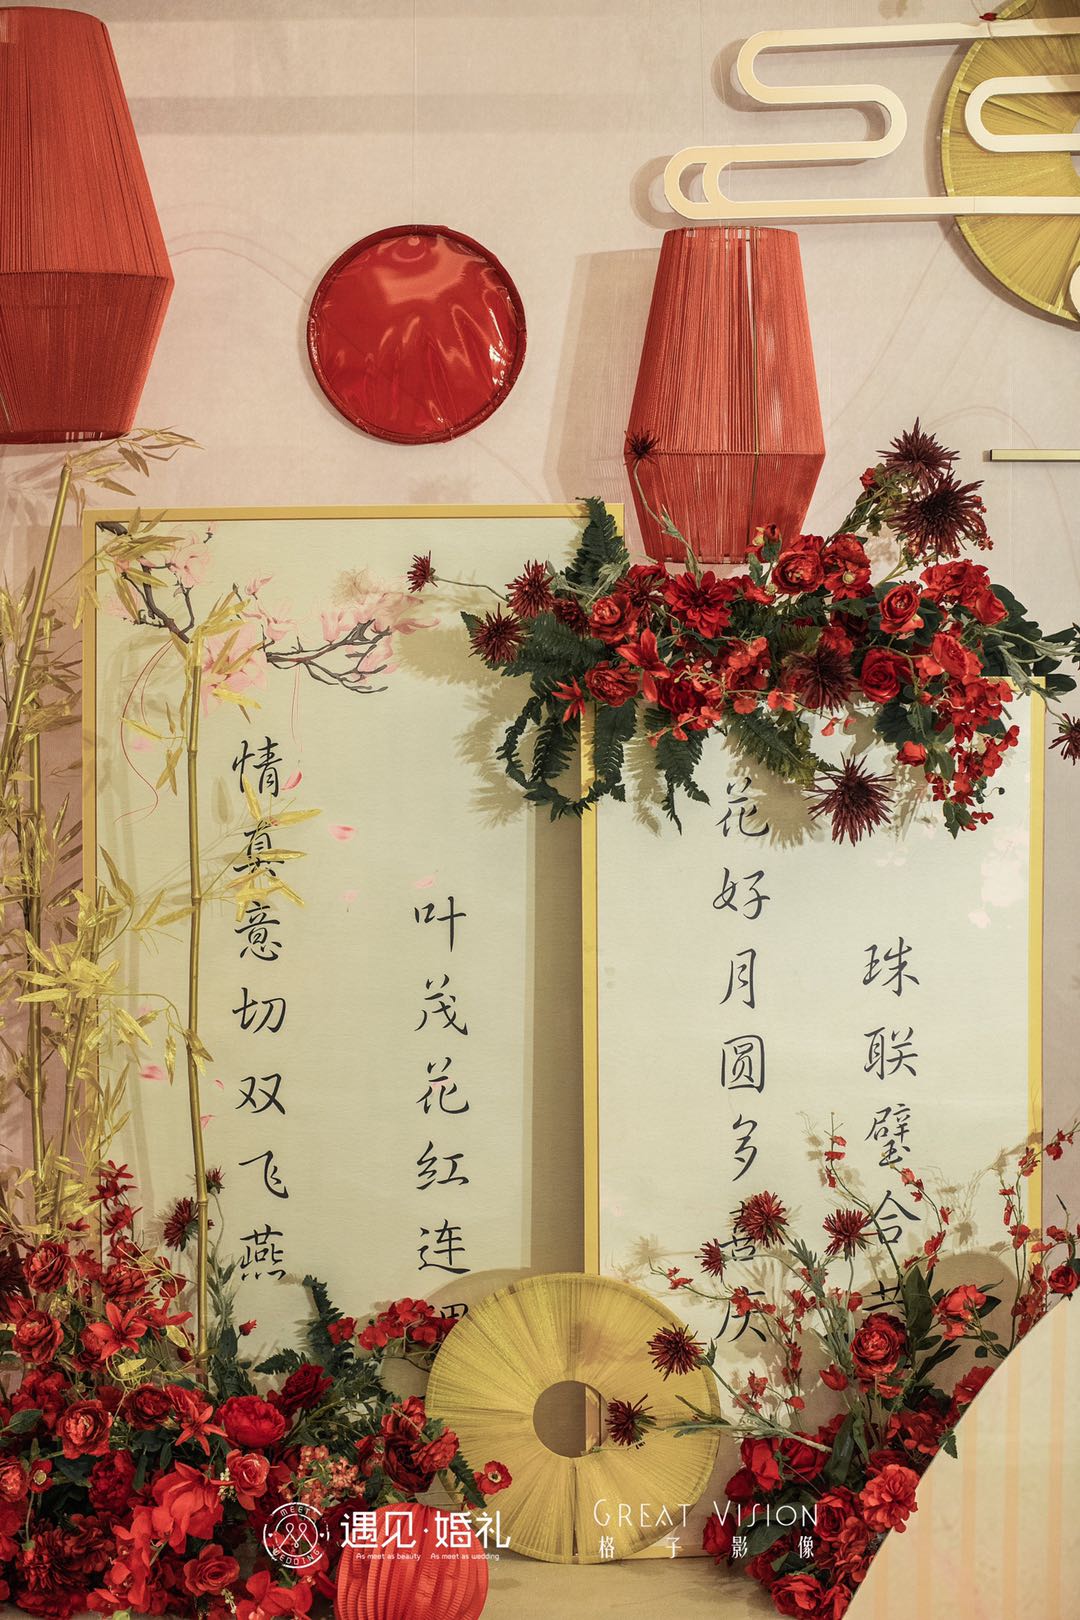 情真意切双飞燕
叶茂花红连理
花好月圆多喜庆
珠联璧合
MEET WEDDING
遇见·婚礼
As meet as beauty As meet as wedding
GREAT VISION
格子影像